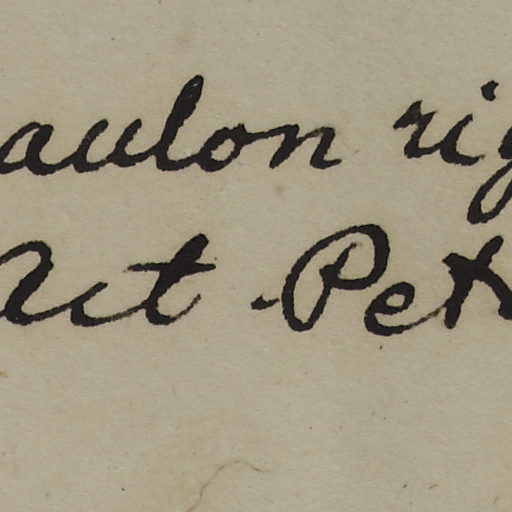 aulon rig
Act. Pet